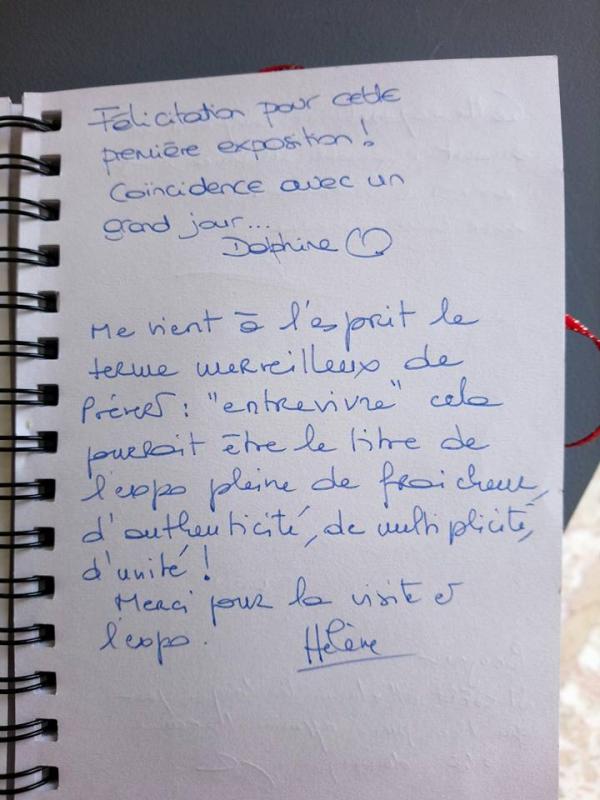 Félicitation pour cette
première exposition !
Coïncidence avec un
grand jour...
Delphine
Me vient à l'esprit le
terme merveilleux de
Prévert : "entrevivre" cela
pourrait être le titre de
l'expo pleine de fraicheur,
d'authenticité, de multiplicité,
d'unité !
Merci pour la visite et
l'expo.
Hélène